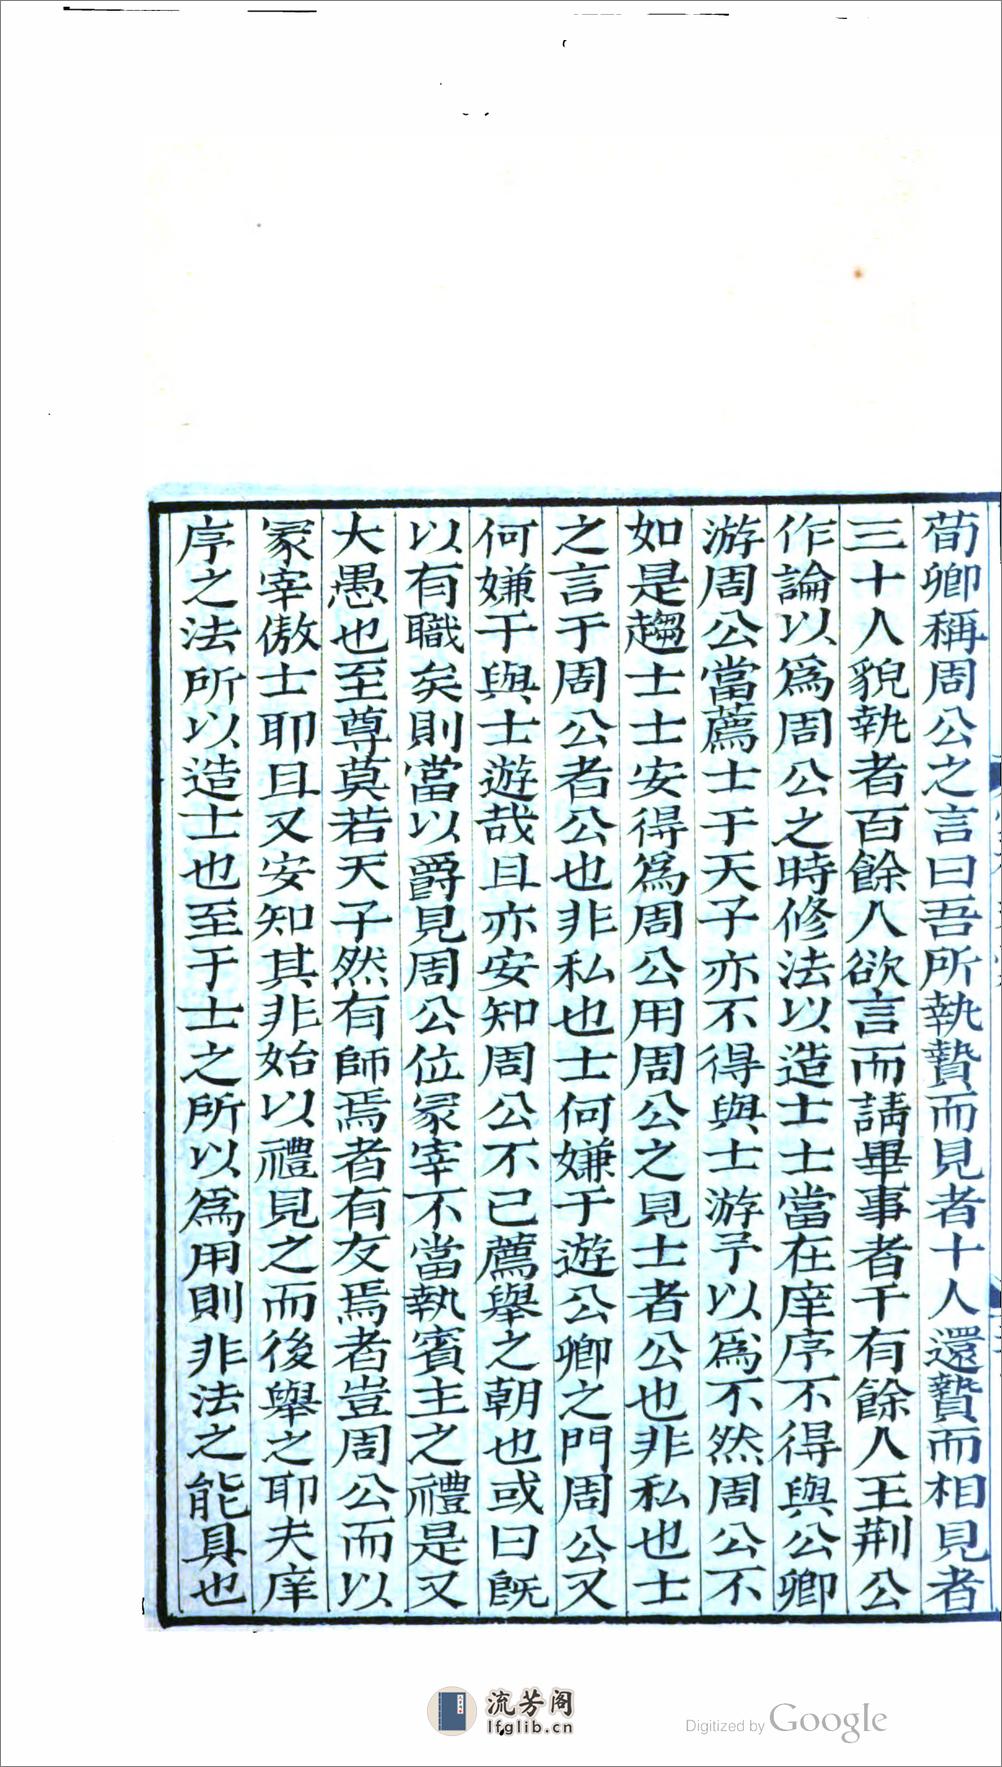 荀卿稱周公之言曰吾所執贄而見者十人還贄而相見者
三十人貌執者百餘人欲言而請畢事者千有餘人王荆公
作論以爲周公之時修法以造士士當在庠序不得與公卿
游周公當薦士于天子亦不得與士游予以爲不然周公不
如是趨士士安得爲周公用周公之見士者公也非私也士
之言于周公者公也非私也士何嫌于遊公卿之門周公又
何嫌于與士遊哉且亦安知周公不已薦舉之朝也或曰既
以有職矣則當以爵見周公位冢宰不當執賓主之禮是又
大愚也至尊莫若天子然有師焉者有友焉者豈周公而以
冢宰傲士耶且又安知其非始以禮見之而後舉之耶夫庠
序之法所以造士也至于士之所以爲用則非法之能具也
流芳阁
lfglib.cn
Digitized by Google